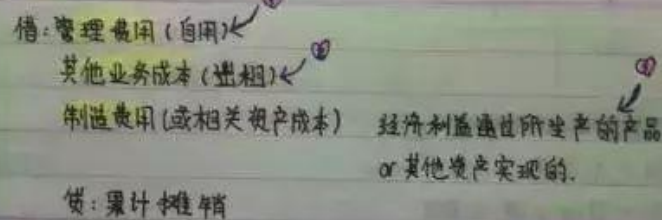 借:管理费用(自用)
其他业务成本(出租)
制造费用(或相关资产成本) 经济利益通过所生产的产品
or 其他资产实现的.
贷:累计摊销